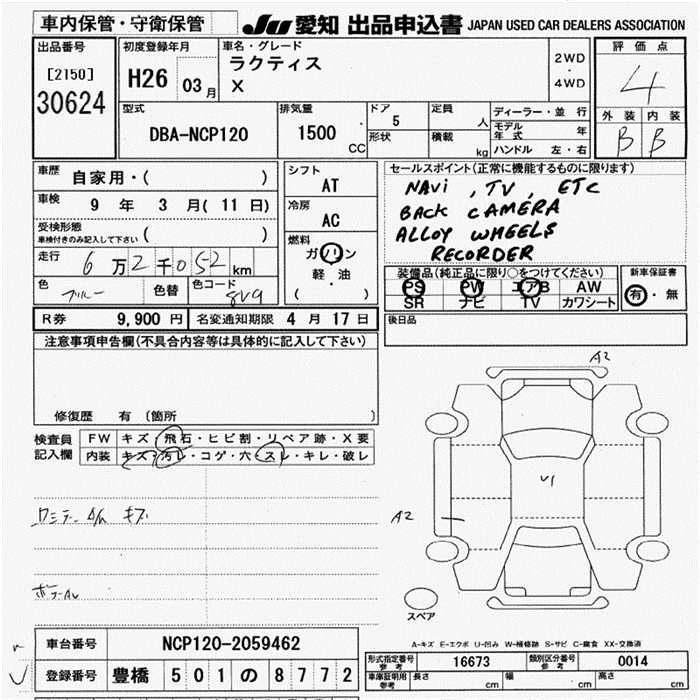 車内保管・守衛保管
JU 愛知 出品申込書 JAPAN USED CAR DEALERS ASSOCIATION
出品番号
[2150]
30624
初度登録年月
H26 03月
車名・グレード
ラクティス
X
2WD
・
4WD
評価点
4
外装 内装
B B
型式
DBA-NCP120
排気量
1500 CC
ドア
5
形状
定員
人
積載
kg
ディーラー・並行
モデル年式 年
ハンドル 左・右
車歴
自家用・( )
車検
9 年 3 月( 11 日)
受検形態
車検付きのみ記入して下さい ( )
走行
6万2千052km
色
ブルー
色替
色コード
8V9
シフト
AT
冷房
AC
燃料
ガソリン
軽・油
( )
セールスポイント(正常に機能するものに限ります)
NAVi , TV , ETC
BACK CAMERA
ALLOY WHEELS
RECORDER
装備品(純正品に限り○をつけてください)
PS PW エアB AW
SR ナビ TV カワシート
新車保証書
有・無
R券 9,900 円 名変通知期限 4 月 17 日
後日品
注意事項申告欄(不具合内容等は具体的に記入して下さい)
修復歴 有 〔箇所 〕
検査員記入欄
FW キズ・飛石・ヒビ割・リペア跡・X要
内装 キズ・汚レ・コゲ・穴・スレ・キレ・破レ
キズ
A2
U1
A2
スペア
A-キズ E-エクボ U-凹み W-補修跡 S-サビ C-腐食 XX-交換済
車台番号 NCP120-2059462
登録番号 豊橋 501 の 8772
形式指定番号 参考 16673 類別区分番号 参考 0014
車庫証明用 参考 長さ cm 幅 cm 高さ cm